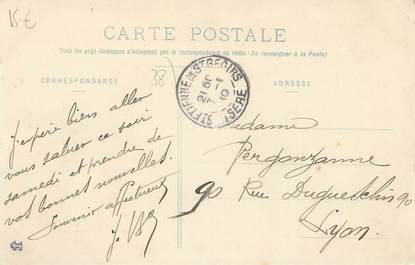 15€
CARTE POSTALE
Tous les pays étrangers n'acceptent pas la correspondance au recto. (Se renseigner à la Poste)
CORRESPONDANCE
38
ADRESSE
ST ETIENNE DE ST GEOIRS
ISERE
J'espère bien aller
vous saluer ce soir
samedi et prendre de
vos bonnes nouvelles.
Souvenir affectueux
Madame
Pergonzanne
90 Rue Duguesclin 90
Lyon.